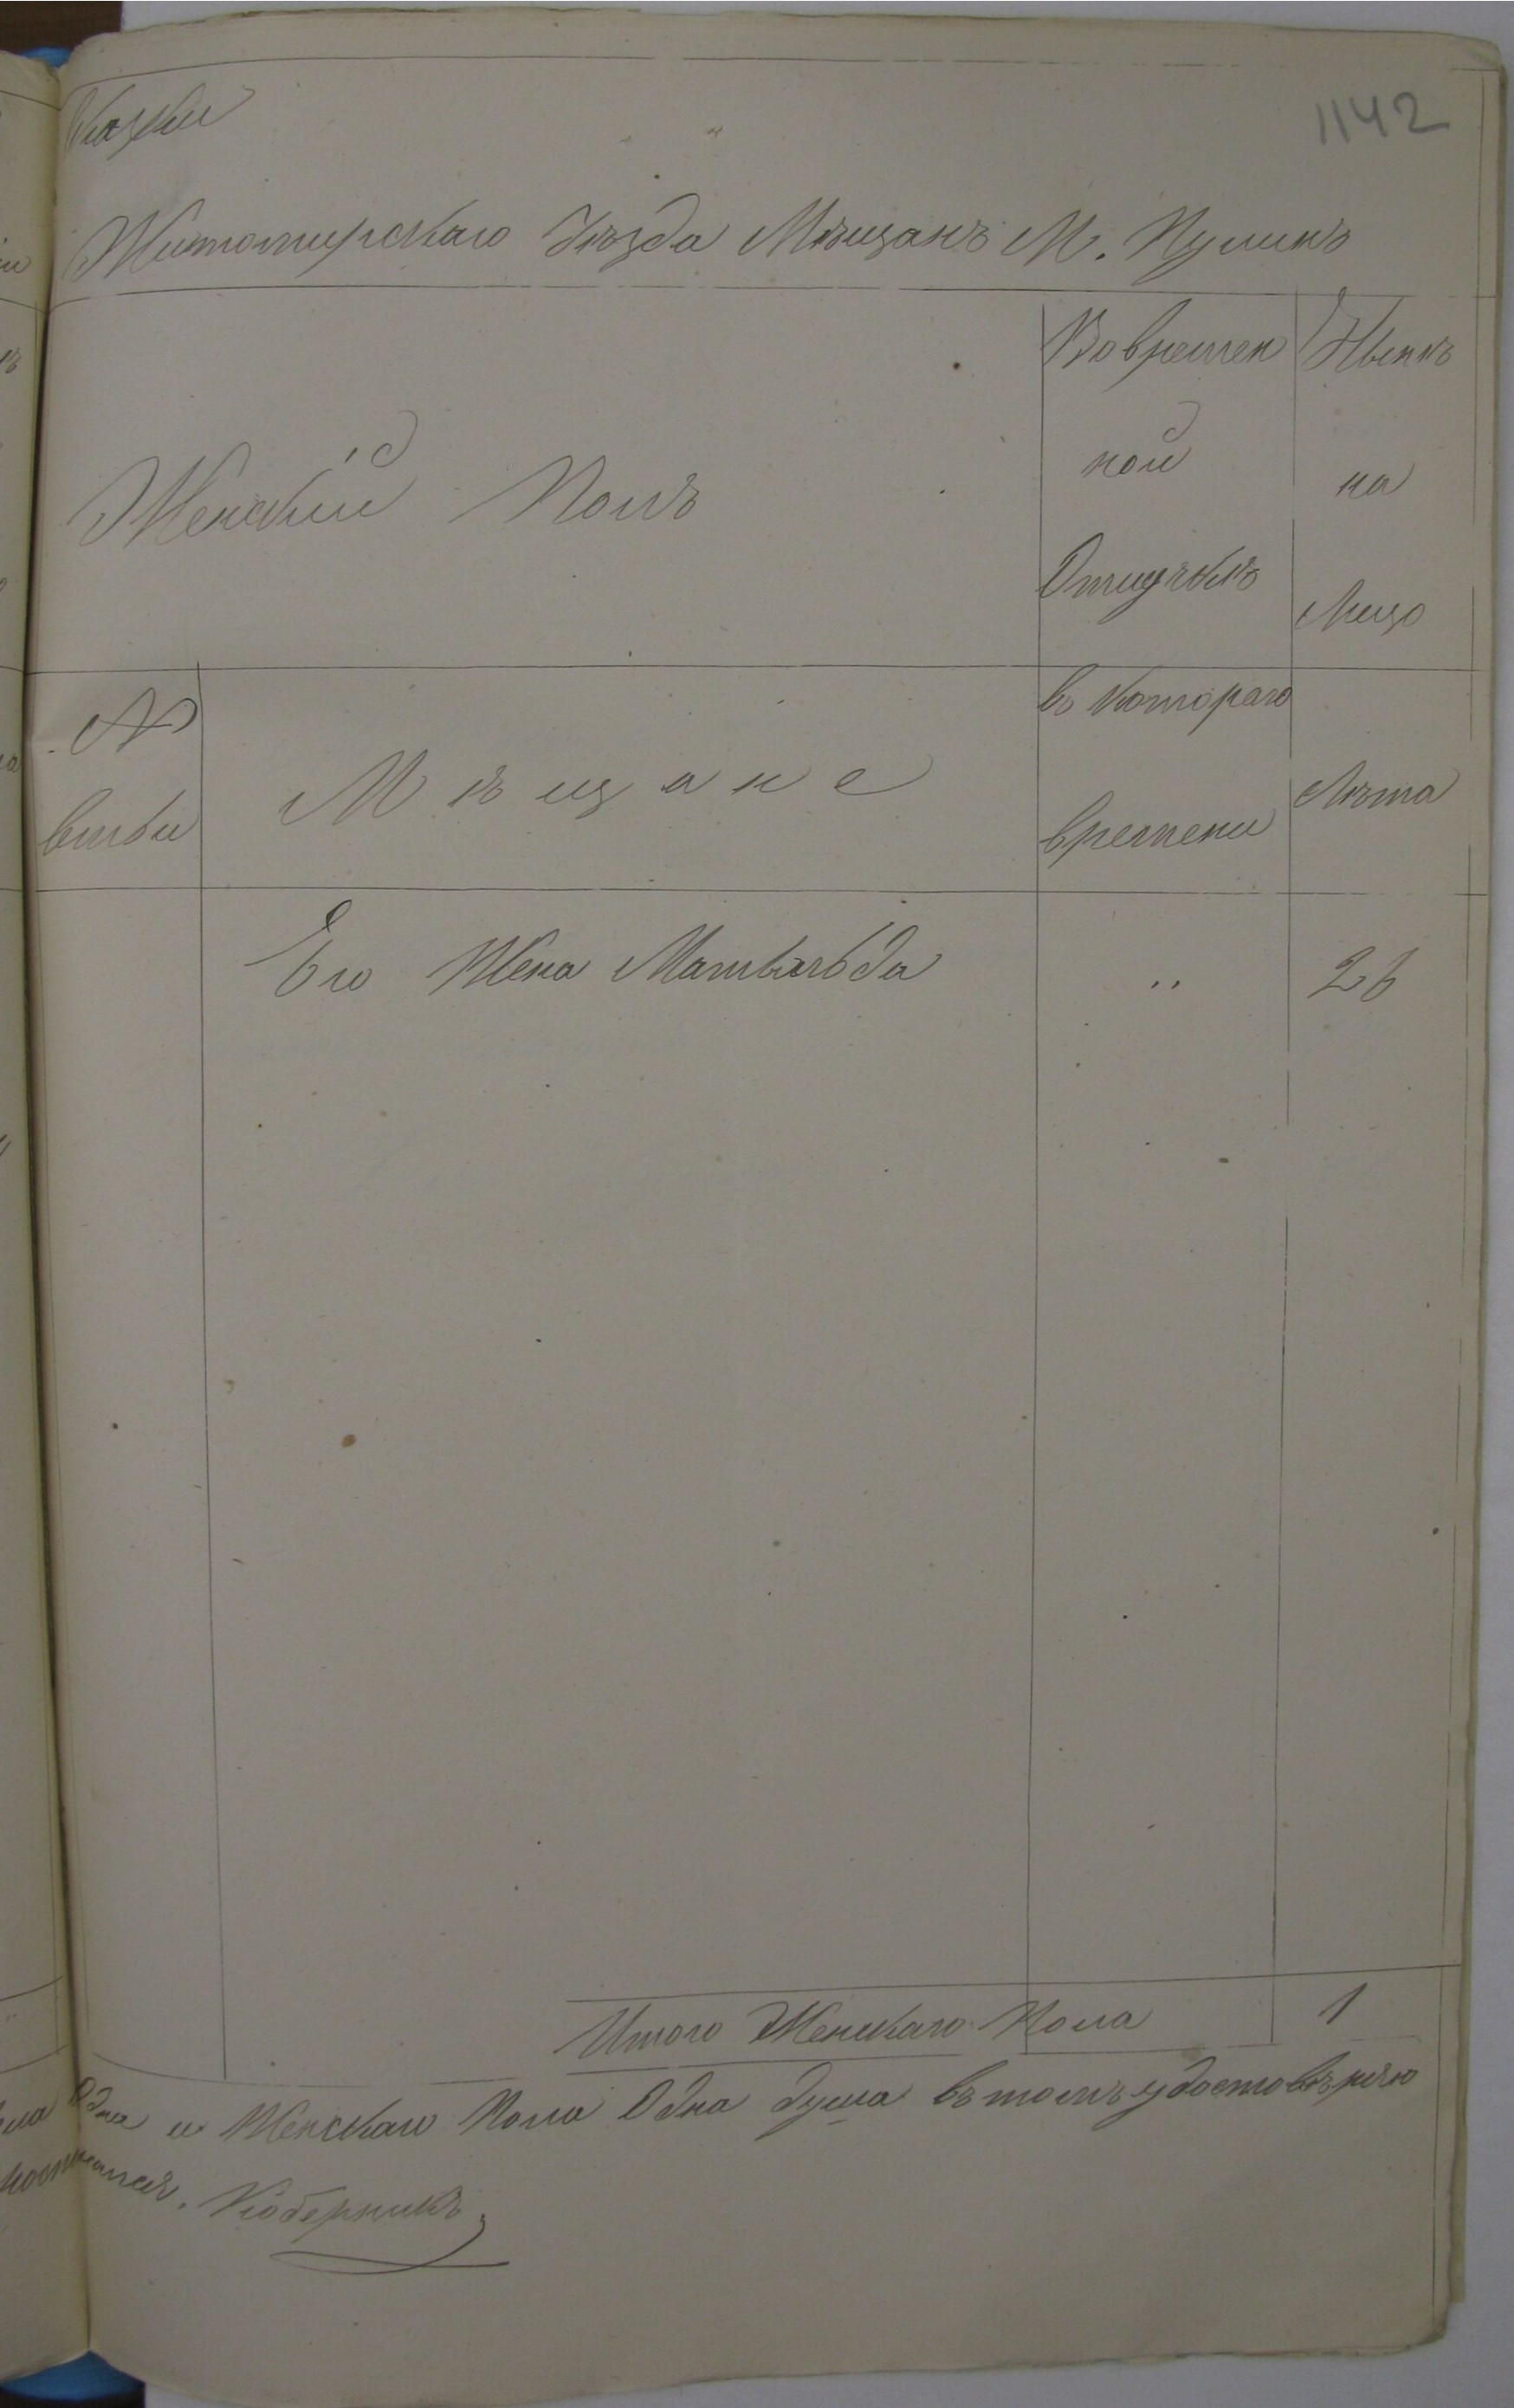 Сказки
1142
Житомирскаго Уѣзда Мѣщанъ М. Пулинъ
Женскій Полъ
Во времен
ной
Отлучкѣ
Нынѣ
на
Лицо
№
Мѣщане
въ котораго
времени
Лѣта
Его Жена Матвильда
"
26
Итого Женскаго Пола
1
Одна и Женскаго Пола Одна душа въ томъ удостовѣряю
Коберникъ